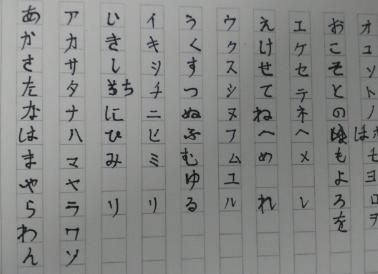 あかさたなはまやらわん
アカサタナハマヤラワン
いきしちにひみり
イキシチニヒミリ
うくすつぬふむゆる
ウクスツヌフムユル
えけせてねへめれ
エケセテネヘメレ
おこそとのほもよろを
オコソトノモヨロヲ